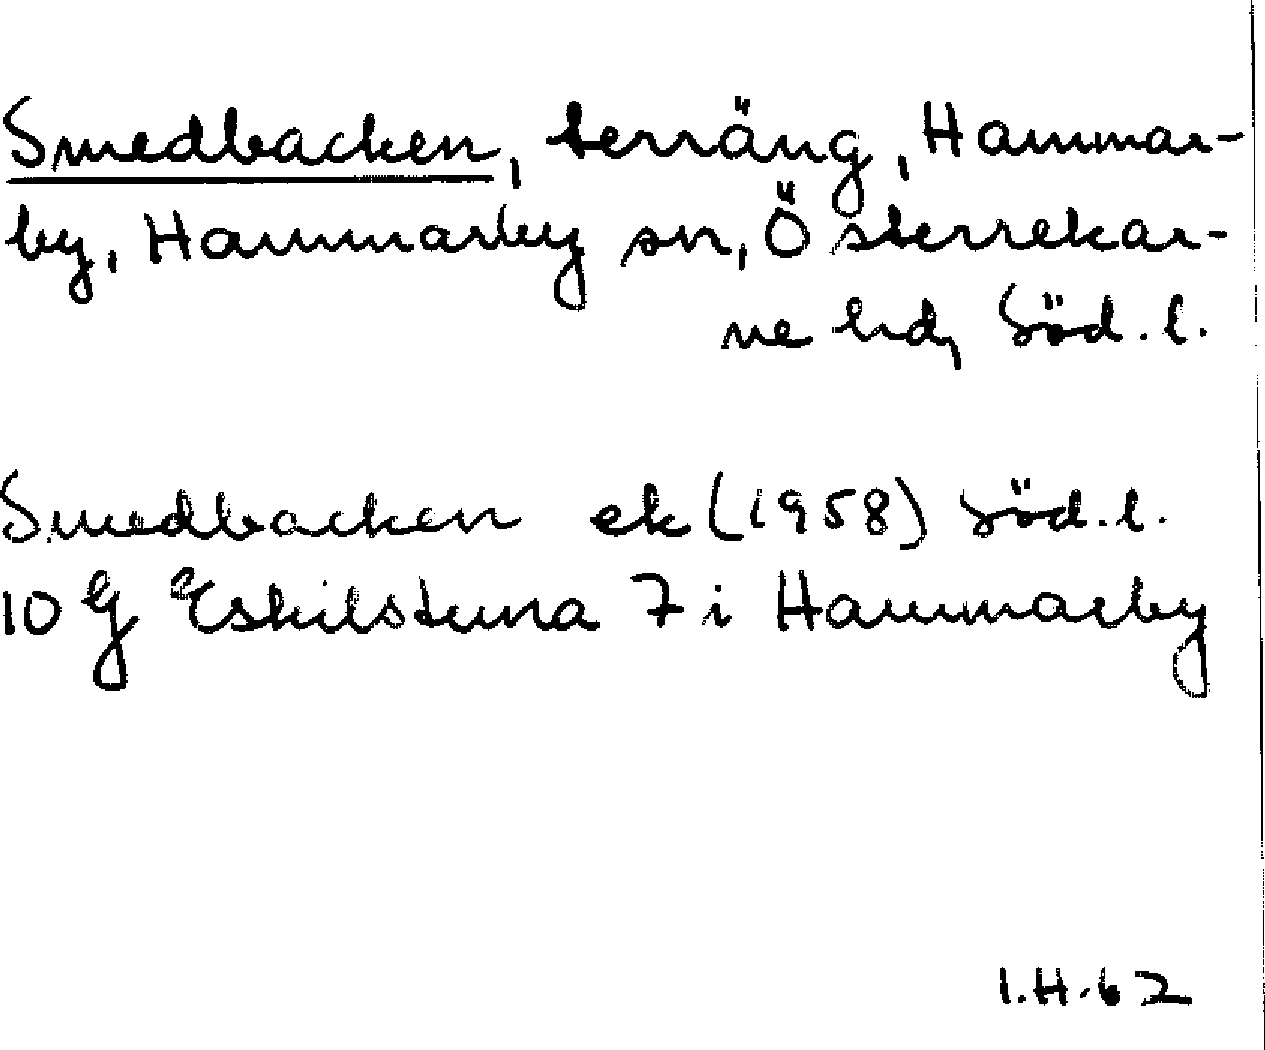 Smedbacken, terräng, Hammar-
by, Hammarby sn, Österrekar-
ne hd, Söd. l.
Smedbacken ek (1958) Söd. l.
10 G Eskilstuna 7 i Hammarby
I.H. 62